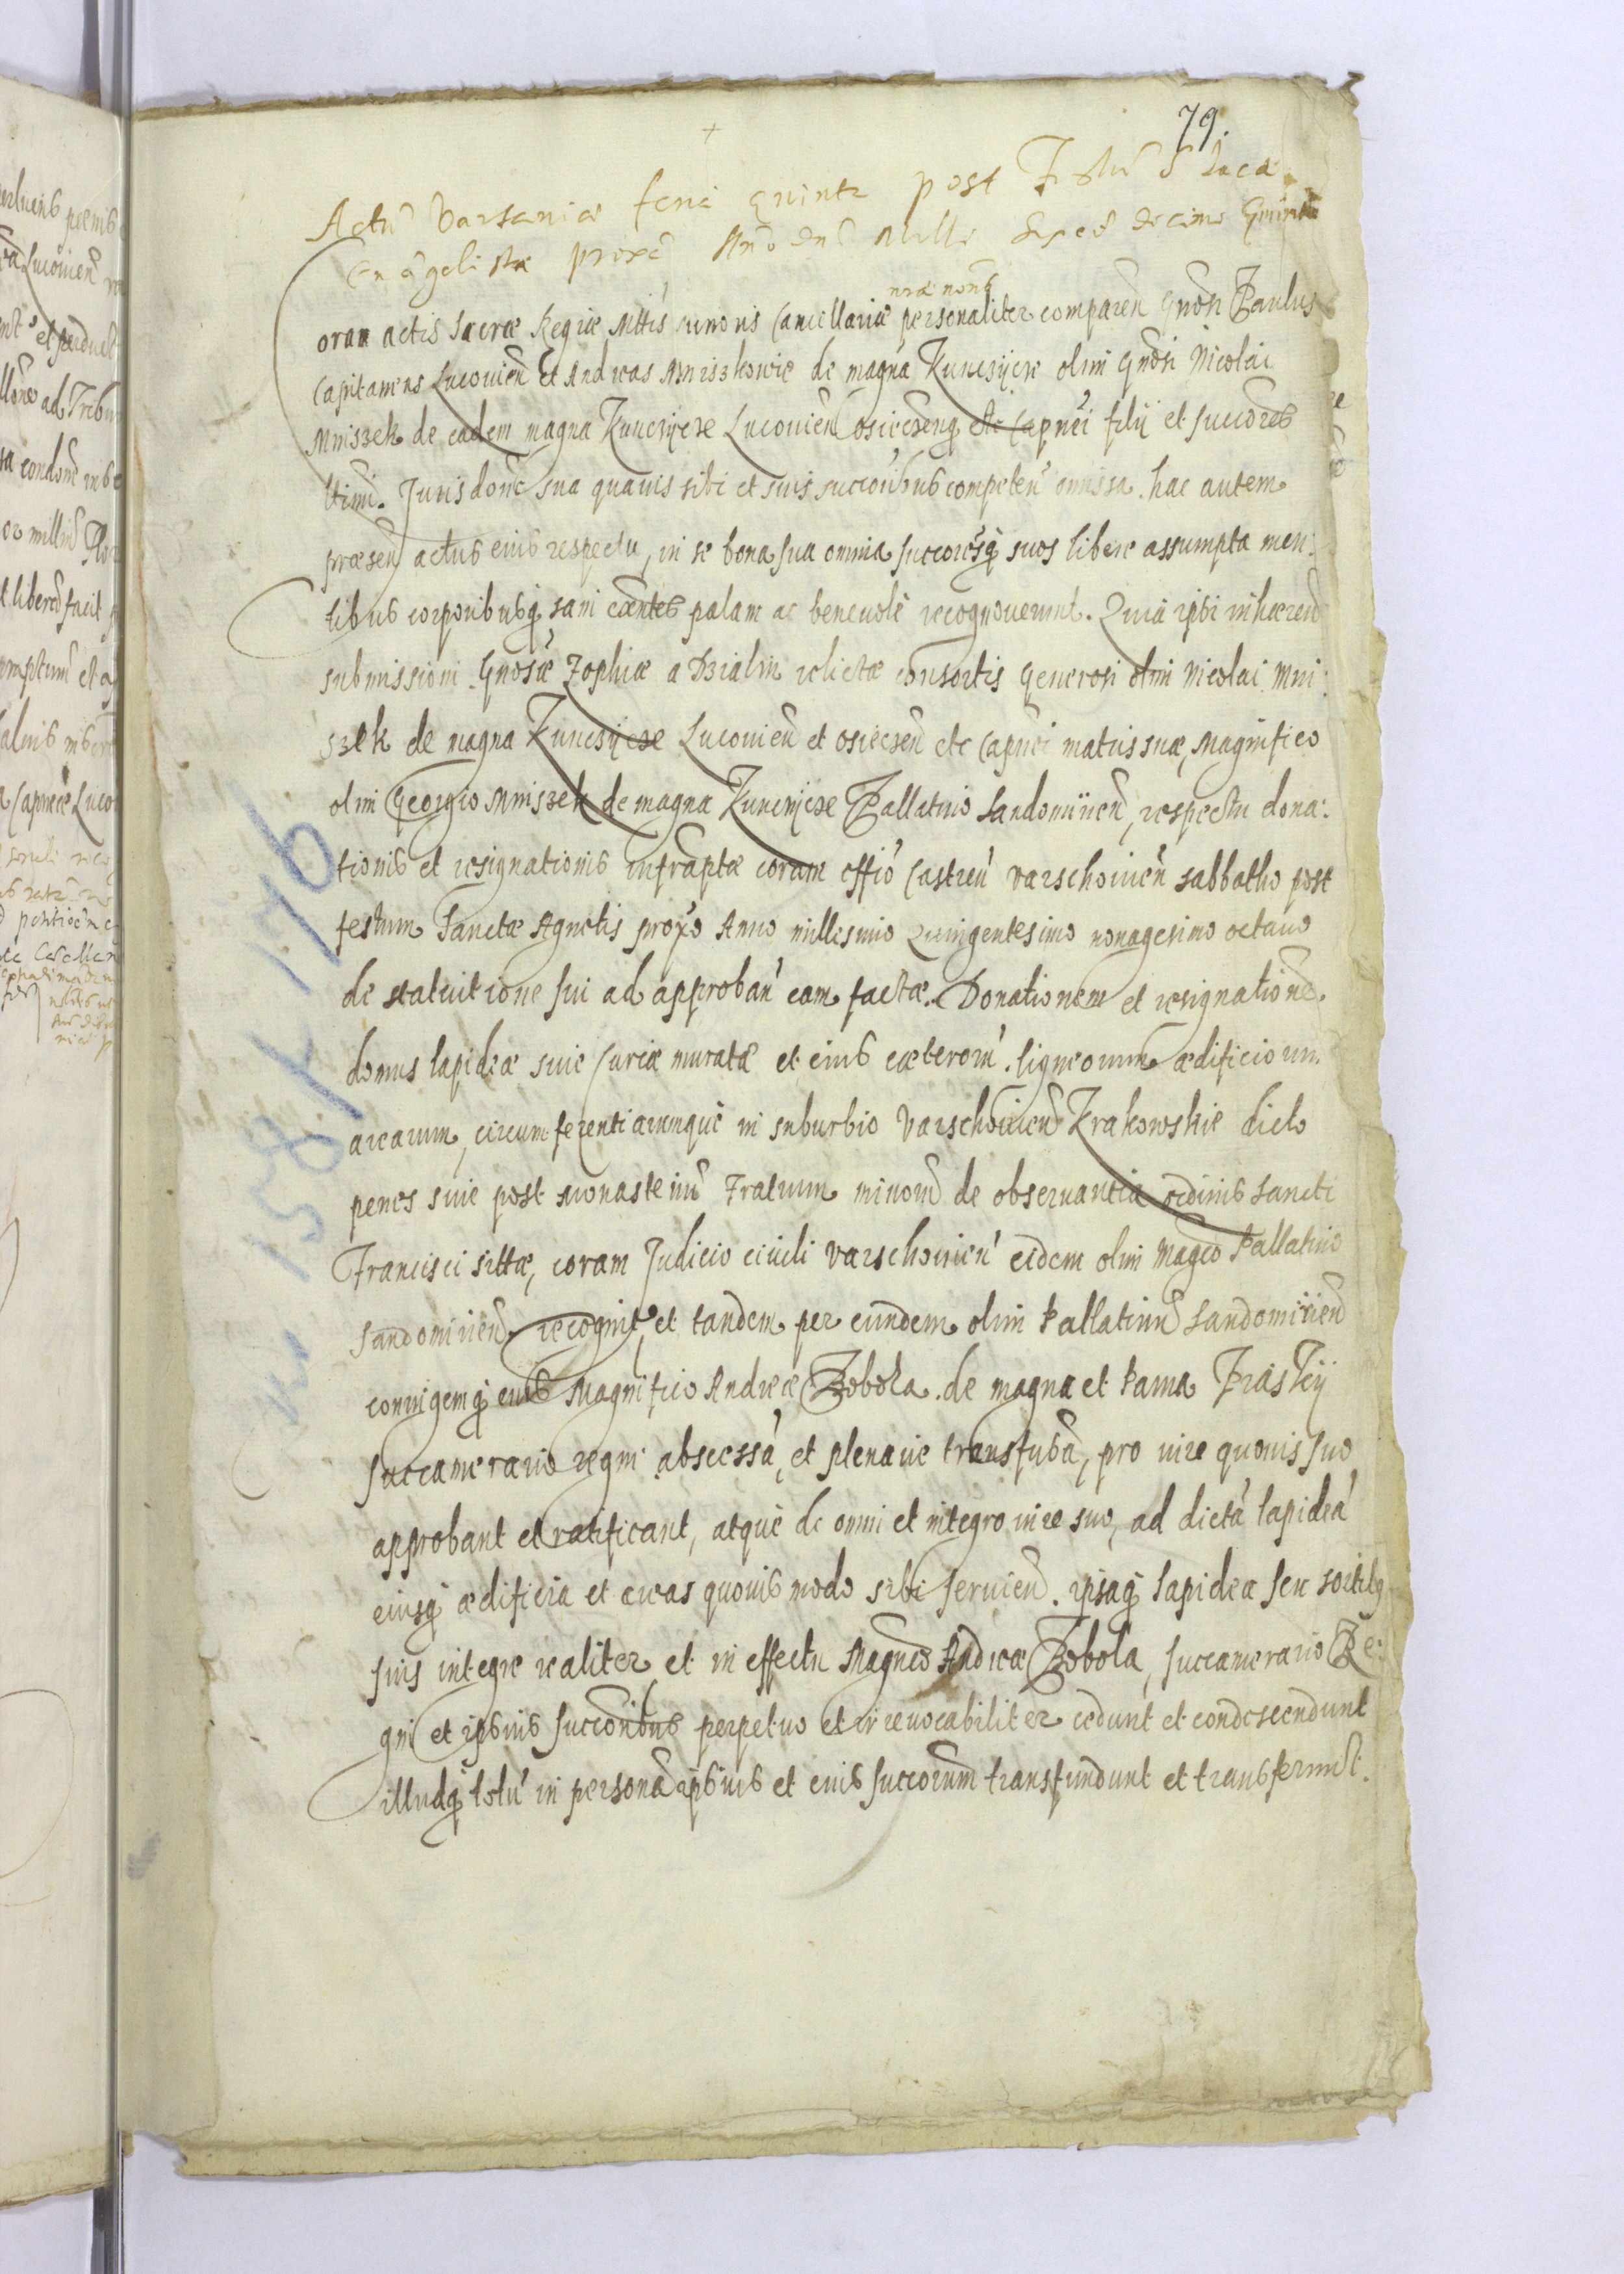 79.
Actū Varsaviæ feria quinta post Festū S Lucæ
Evāgelistæ proxē Anō Dnī Mille Sexcē decimo Quinto
nræ noñs
oram actis Sacræ Regiæ Mttis minoris Cancellariæ personaliter comparen̄ Gnōsi Paulus
Capitaneus Lucovien̄ et Andreas Mniszkowie de magna Kunczijcze olim Gnōsi Nicolai
Mniszek de eadem magna Kunczijcze Lucovien̄ Osieczenq̄ etc Capnēi filij et succōres
ltimi. Juris dōne sua quavis sibi et suis succōribus competen̄ omissa. hac autem
præsen̄ actus eius respectu, in se bona sua omnia succoresq̄ suos libere assumpta men:
tibus corporibusq̄ sani exn̄tes palam ac benevolè recognoverunt. Quia ipsi inhæren̄d
submissioni. Gnōsæ Zophiæ a Dzialin relictæ consortis Generosi olim Nicolai Mni:
szek de magna Kunczijcze Lucovien̄ et Osieczen̄ etc Capnēi matris suæ, Magnifico
olim Georgio Mniszek de magna Kunczijcze Pallatino Sandomirien̄, respectu dona:
tionis et resignationis infrãptæ coram offiō Castren̄ Varschovien̄ sabbatho post
festum Sanctæ Agnetis proxō Anno millesimo Quingentesimo nonagesimo octavo
de statuitione sui ad approban̄ eam factæ. Donationem et resignationē
domus lapideæ sive Curiæ muratæ et eius cæterorū. ligneorum ædificiorum.
arearum, circumferentiarumquè in suburbio Varschovien̄ Krakowskie dicto
penes sive post monasteriū Fratrum minorū de observantia ordinis Sancti
Francisci sittæ, coram Judicio civili Varschovien̄ eidem olim Magcō Pallatino
Sandomirien̄. recognit̄, et tandem per eundem olim Pallatinū Sandomirien̄
coniugemq̄ eius Magnifico Andreæ Bobola. de magna et Parva Piaskij
Succamerario regni abscessā, et plenarie transfusā, pro iure quovis suo
approbant et ratificant, atquè de omni et integro iure suo, ad dictā lapideā
eiusq̄ ædificia et areas quovis modo sibi servien̄. ipsaq̄ lapidea seu sortibq̄
suis integre realiter et in effectu Magncō Andreæ Bobola, Succamerario Re:
gni et ipsius succōribus perpetuo et irrevocabiliter cedunt et condescendunt
illudq̄ totū in personā ipsius et eius succorum transfundunt et transferunt.
158 k 176